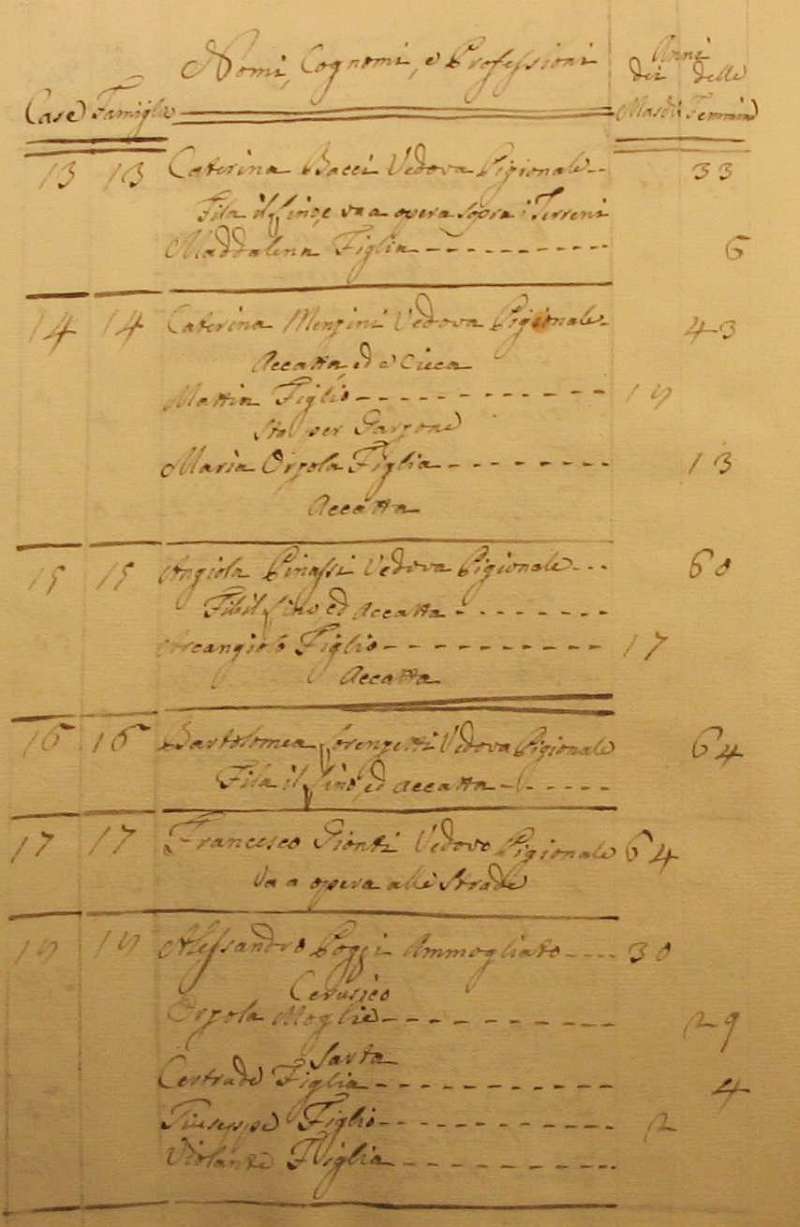 Nomi, Cognomi, e Professioni Anni
dei delle
Case Famiglie Maschi Femmine
13 13 Caterina Bacci Vedova Pigionale 33
Fila il Lino, e va a opera sopra i Terreni
Maddalena Figlia 6
14 14 Caterina Menzini Vedova Pigionale 43
Accatta, ed è Cieca
Mattia Figlio
Sta per Garzone
Maria Orsola Figlia 13
Accatta
15 15 Angiola Pinassi Vedova Pigionale 60
Fila il Lino ed Accatta
Arcangiolo Figlio 17
Accatta
16 16 Bartolomea Lorenzetti Vedova Pigionale 64
Fila il Lino, ed Accatta
17 17 Francesco Gionti Vedovo Pigionale 64
Va a opera alle Strade
Alessandro Poggi Ammogliato 30
Cerusico
Orsola Moglie 29
Sarta
Certrude Figlia 4
Giuseppe Figlio 2
Violante Figlia